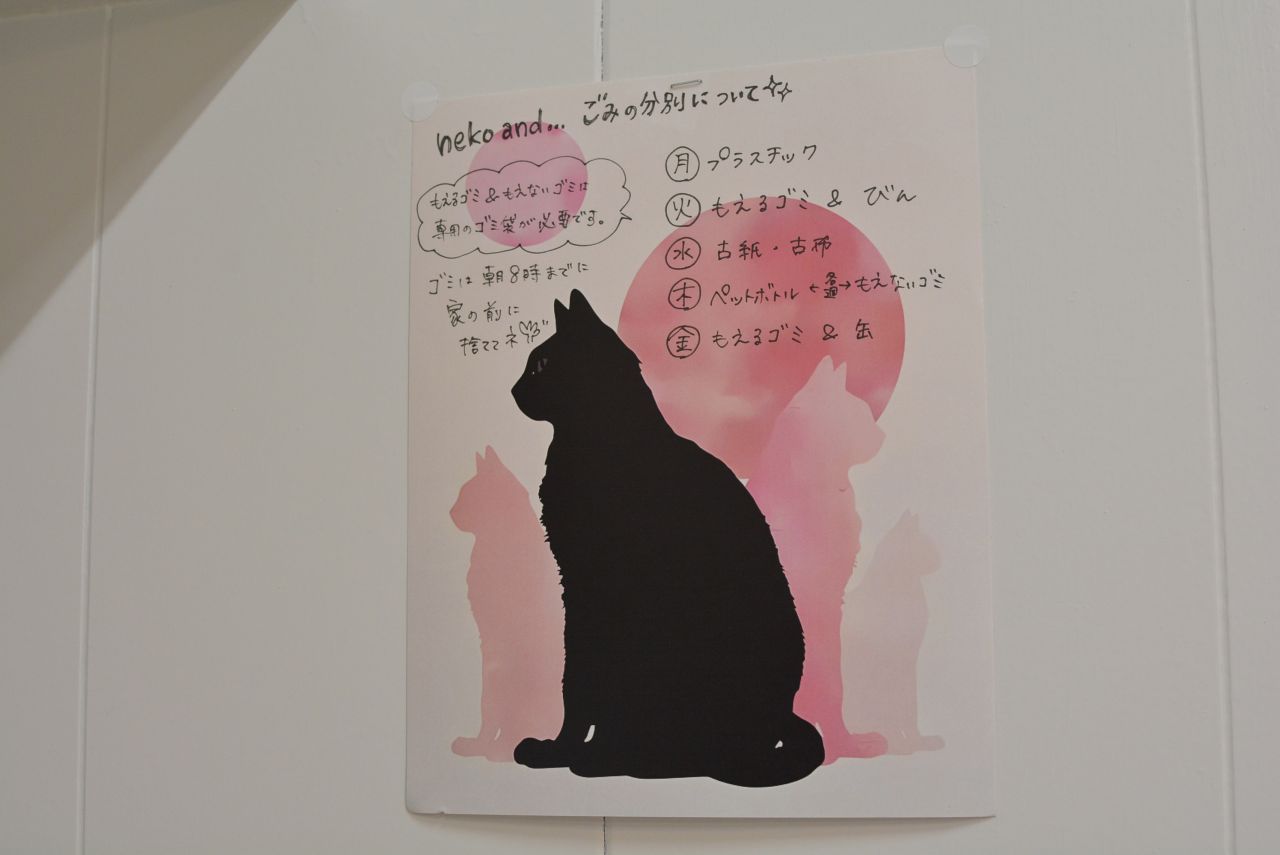 neko and... ごみの分別について
もえるゴミ & もえないゴミは
専用のゴミ袋が必要です。
ゴミは朝8時までに
家の前に
捨ててネ
月 プラスチック
火 もえるゴミ & びん
水 古紙・古布
木 ペットボトル ←各週→ もえないゴミ
金 もえるゴミ & 缶